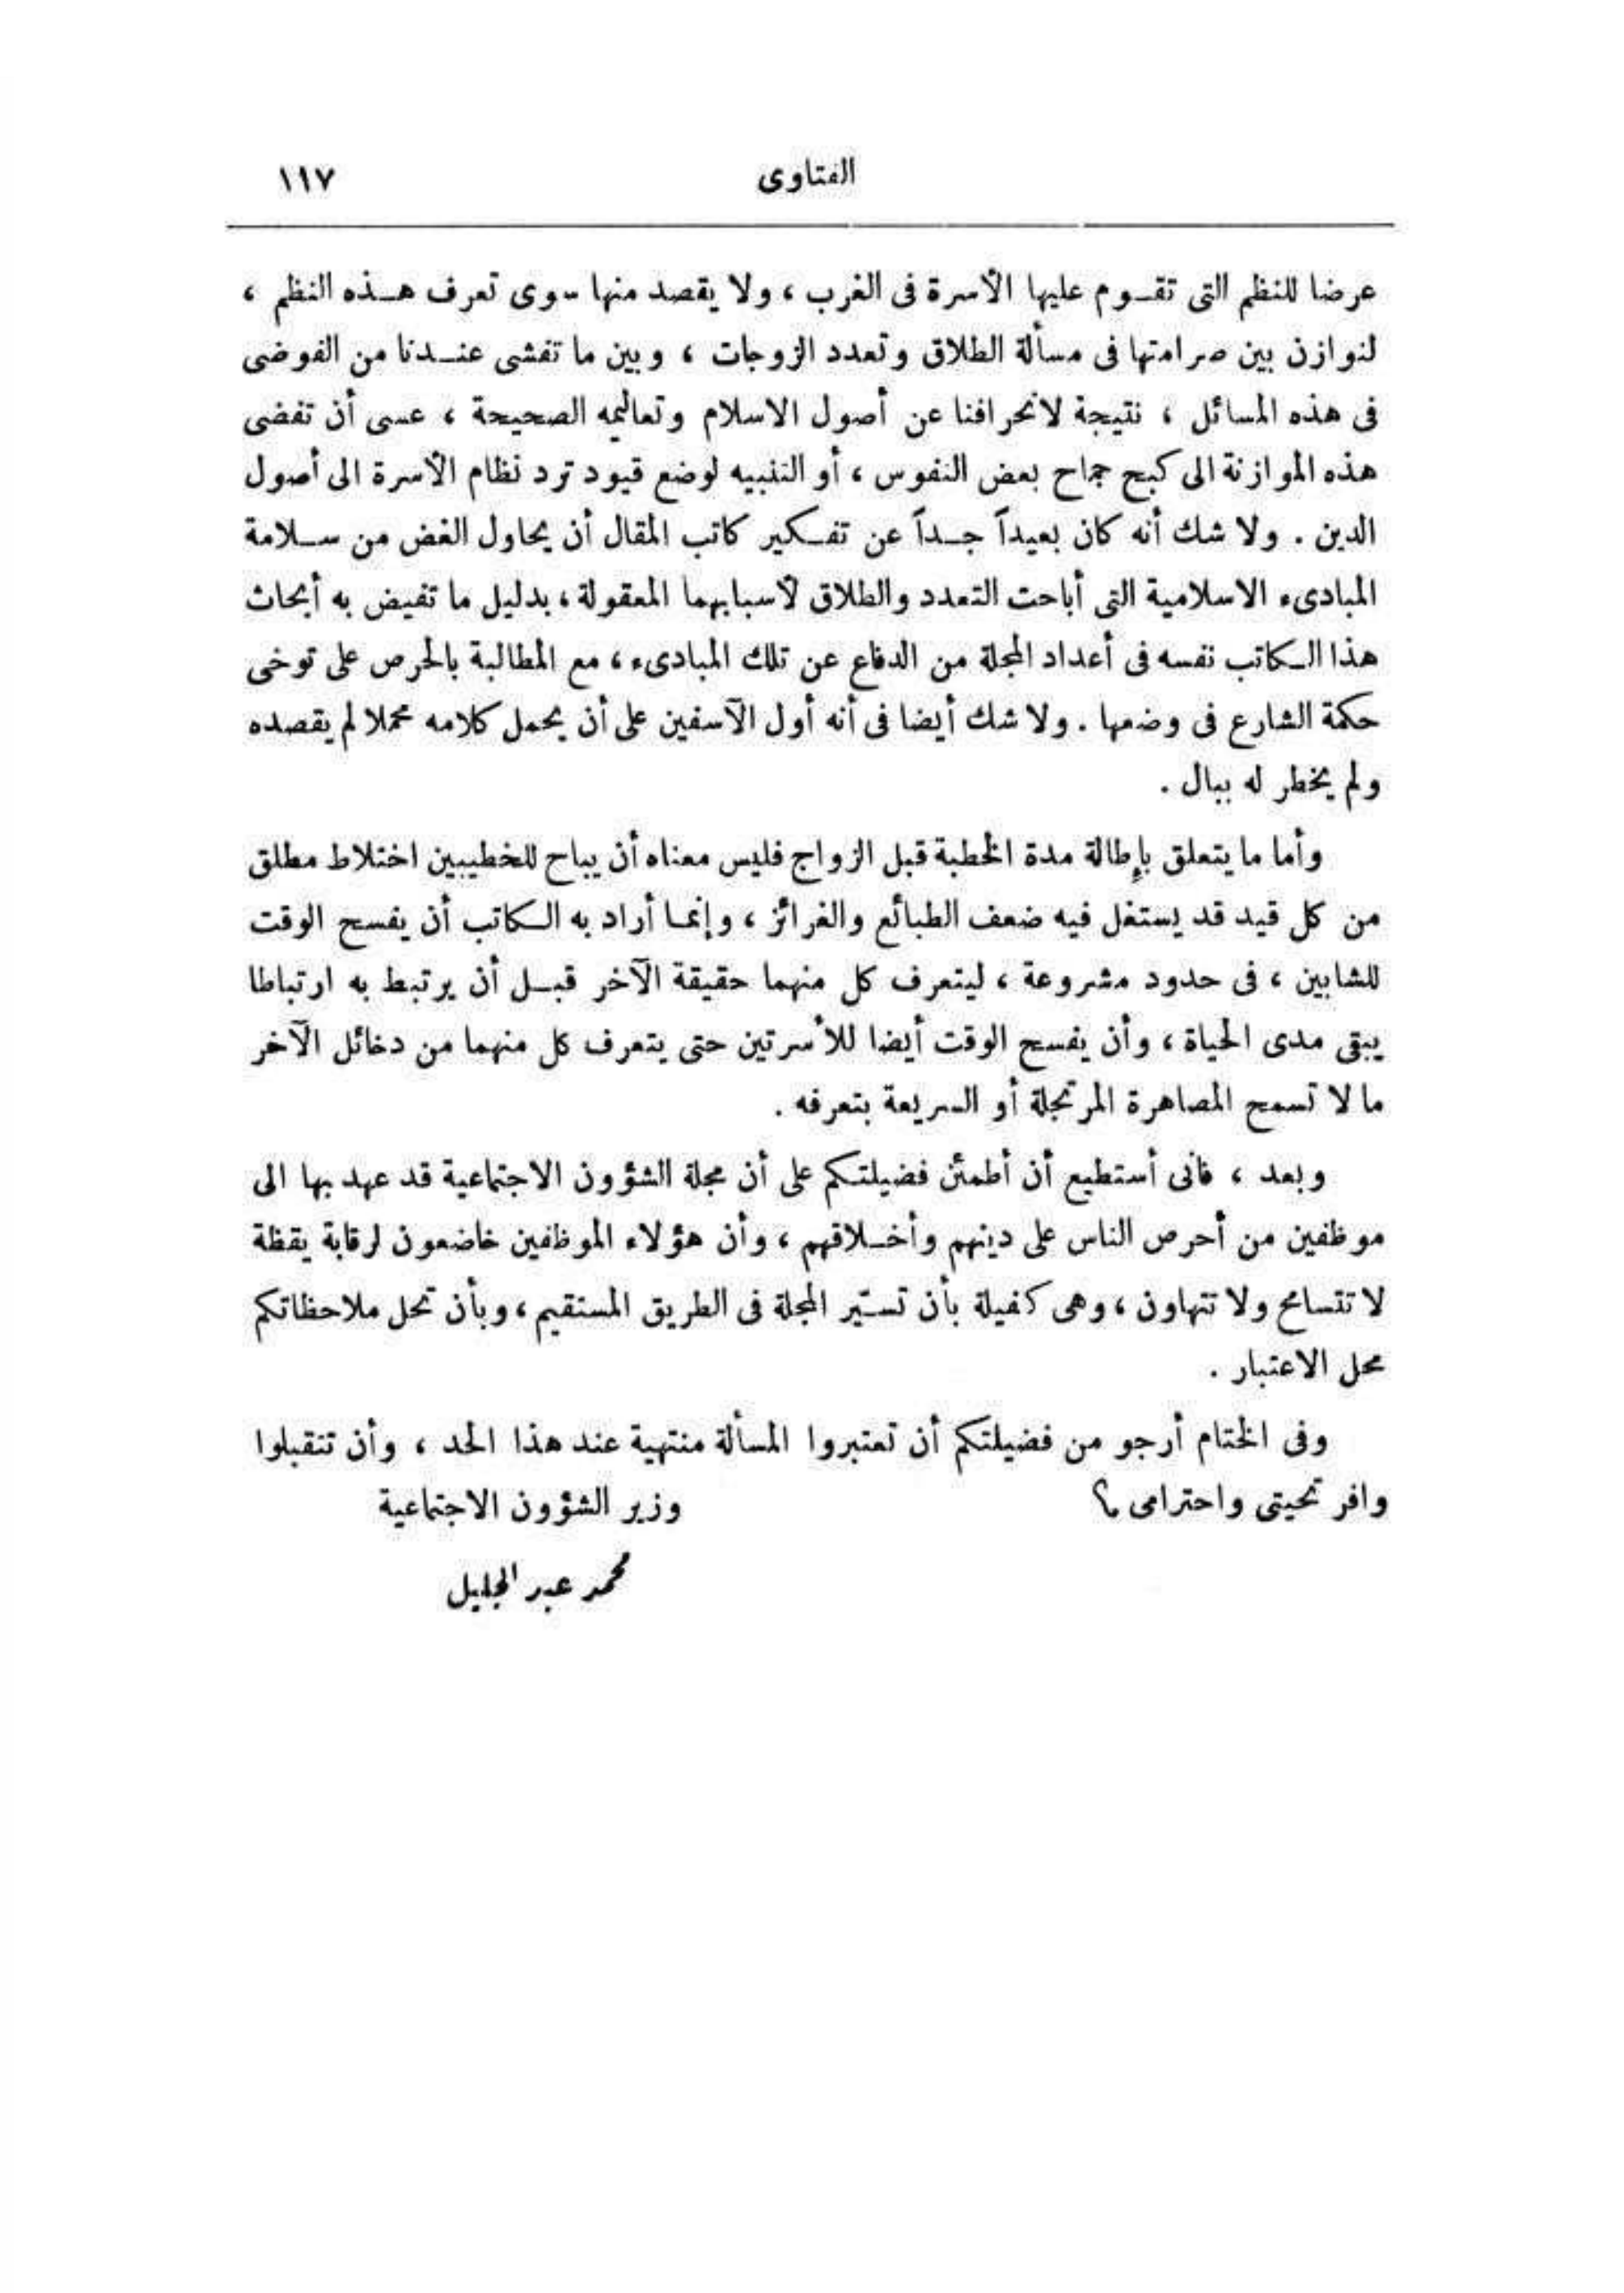 الفتاوى ١١٧
عرضا للنظم التى تقوم عليها الأسرة فى الغرب ، ولا يقصد منها سوى تعرف هذه النظم ،
لنوازن بين صرامتها فى مسألة الطلاق وتعدد الزوجات ، وبين ما تفشى عندنا من الفوضى
فى هذه المسائل ، نتيجة لانحرافنا عن أصول الاسلام وتعاليمه الصحيحة ، عسى أن تفضى
هذه الموازنة الى كبح جماح بعض النفوس ، أو التنبيه لوضع قيود ترد نظام الأسرة الى أصول
الدين . ولا شك أنه كان بعيداً جداً عن تفكير كاتب المقال أن يحاول الغض من سلامة
المبادىء الاسلامية التى أباحت التعدد والطلاق لأسبابهما المعقولة ، بدليل ما تفيض به أبحاث
هذا الكاتب نفسه فى أعداد المجلة من الدفاع عن تلك المبادىء ، مع المطالبة بالحرص على توخى
حكمة الشارع فى وضعها . ولا شك أيضا فى أنه أول الآسفين على أن يحمل كلامه محملا لم يقصده
ولم يخطر له ببال .
وأما ما يتعلق بإطالة مدة الخطبة قبل الزواج فليس معناه أن يباح للخطيبين اختلاط مطلق
من كل قيد قد يستغل فيه ضعف الطبائع والغرائز ، وإنما أراد به الكاتب أن يفسح الوقت
للشابين ، فى حدود مشروعة ، ليتعرف كل منهما حقيقة الآخر قبل أن يرتبط به ارتباطا
يبقى مدى الحياة ، وأن يفسح الوقت أيضا للأسرتين حتى يتعرف كل منهما من دخائل الآخر
ما لا تسمح المصاهرة المرتجلة أو السريعة بتعرفه .
وبعد ، فانى أستطيع أن أطمئن فضيلتكم على أن مجلة الشؤون الاجتماعية قد عهد بها الى
موظفين من أحرص الناس على دينهم وأخلاقهم ، وأن هؤلاء الموظفين خاضعون لرقابة يقظة
لا تتسامح ولا تتهاون ، وهى كفيلة بأن تسيّر المجلة فى الطريق المستقيم ، وبأن تحل ملاحظاتكم
محل الاعتبار .
وفى الختام أرجو من فضيلتكم أن تعتبروا المسألة منتهية عند هذا الحد ، وأن تتقبلوا
وافر تحيتى واحترامى ؟ وزير الشؤون الاجتماعية
محمد عبد الجليل